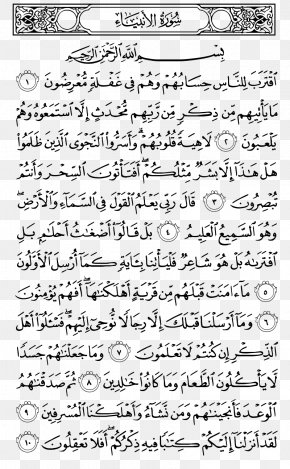 سُورَةُ الأَنْبِيَاءِ
بِسْمِ اللَّهِ الرَّحْمَٰنِ الرَّحِيمِ
ٱقْتَرَبَ لِلنَّاسِ حِسَابُهُمْ وَهُمْ فِي غَفْلَةٍ مُّعْرِضُونَ ١
مَا يَأْتِيهِم مِّن ذِكْرٍ مِّن رَّبِّهِم مُّحْدَثٍ إِلَّا ٱسْتَمَعُوهُ وَهُمْ
يَلْعَبُونَ ٢ لَاهِيَةً قُلُوبُهُمْ ۗ وَأَسَرُّوا۟ ٱلنَّجْوَى ٱلَّذِينَ ظَلَمُوا۟
هَلْ هَٰذَآ إِلَّا بَشَرٌ مِّثْلُكُمْ ۖ أَفَتَأْتُونَ ٱلسِّحْرَ وَأَنتُمْ
تُبْصِرُونَ ٣ قَالَ رَبِّي يَعْلَمُ ٱلْقَوْلَ فِي ٱلسَّمَآءِ وَٱلْأَرْضِ ۖ
وَهُوَ ٱلسَّمِيعُ ٱلْعَلِيمُ ٤ بَلْ قَالُوٓا۟ أَضْغَٰثُ أَحْلَٰمٍۭ بَلِ
ٱفْتَرَىٰهُ بَلْ هُوَ شَاعِرٌ فَلْيَأْتِنَا بِـَٔايَةٍ كَمَآ أُرْسِلَ ٱلْأَوَّلُونَ
٥ مَآ ءَامَنَتْ قَبْلَهُم مِّن قَرْيَةٍ أَهْلَكْنَٰهَآ ۖ أَفَهُمْ يُؤْمِنُونَ
٦ وَمَآ أَرْسَلْنَا قَبْلَكَ إِلَّا رِجَالًا نُّوحِيٓ إِلَيْهِمْ ۖ فَسْـَٔلُوٓا۟ أَهْلَ
ٱلذِّكْرِ إِن كُنتُمْ لَا تَعْلَمُونَ ٧ وَمَا جَعَلْنَٰهُمْ جَسَدًا
لَّا يَأْكُلُونَ ٱلطَّعَامَ وَمَا كَانُوا۟ خَٰلِدِينَ ٨ ثُمَّ صَدَقْنَٰهُمُ
ٱلْوَعْدَ فَأَنجَيْنَٰهُمْ وَمَن نَّشَآءُ وَأَهْلَكْنَا ٱلْمُسْرِفِينَ ٩
لَقَدْ أَنزَلْنَآ إِلَيْكُمْ كِتَٰبًا فِيهِ ذِكْرُكُمْ ۖ أَفَلَا تَعْقِلُونَ ١٠